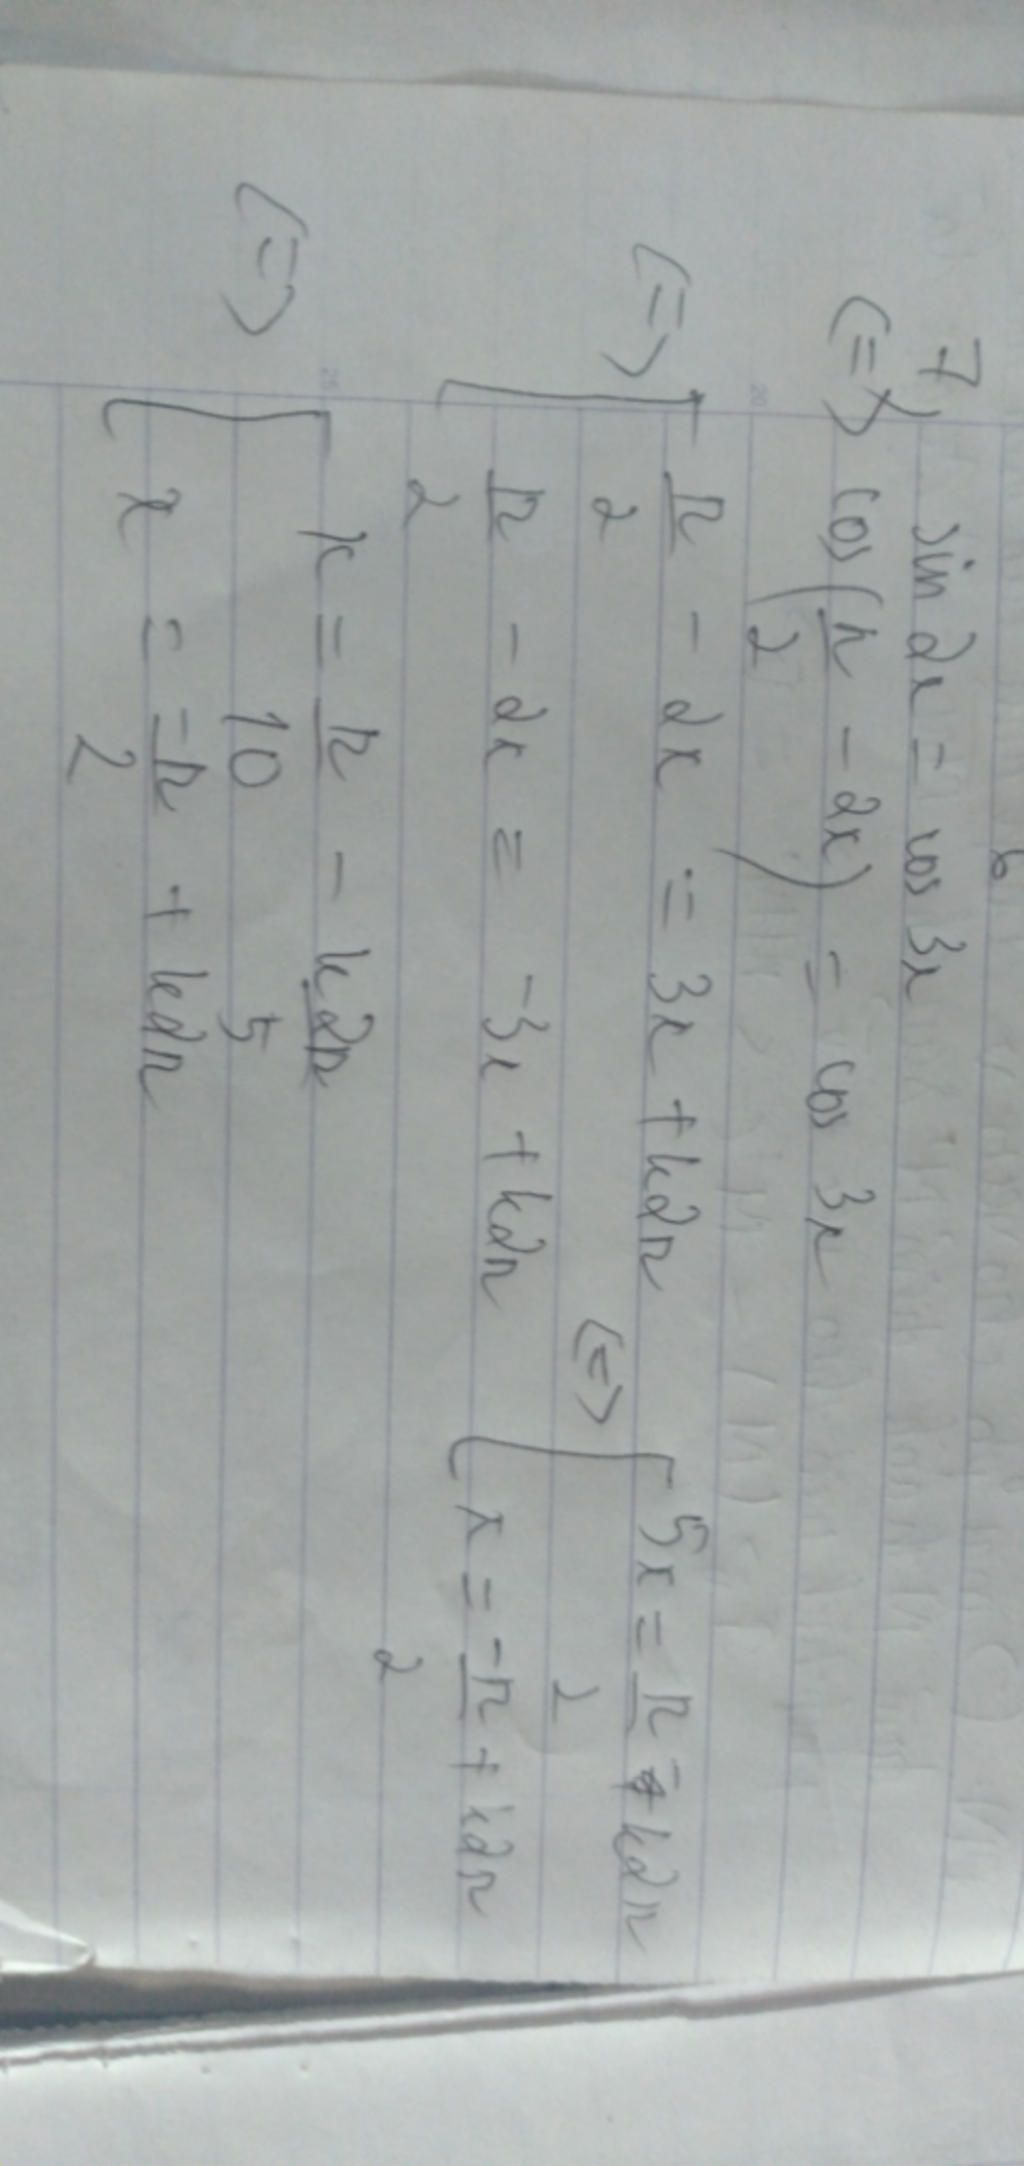 6
7) sin 2x = cos 3x
(=) cos(π/2 - 2x) = cos 3x
(=) [ π/2 - 2x = 3x + k2π
π/2 - 2x = -3x + k2π
(=) [ 5x = π/2 - k2π
x = -π/2 + k2π
(=) [ x = π/10 - k2π/5
x = -π/2 + k2π
20
25